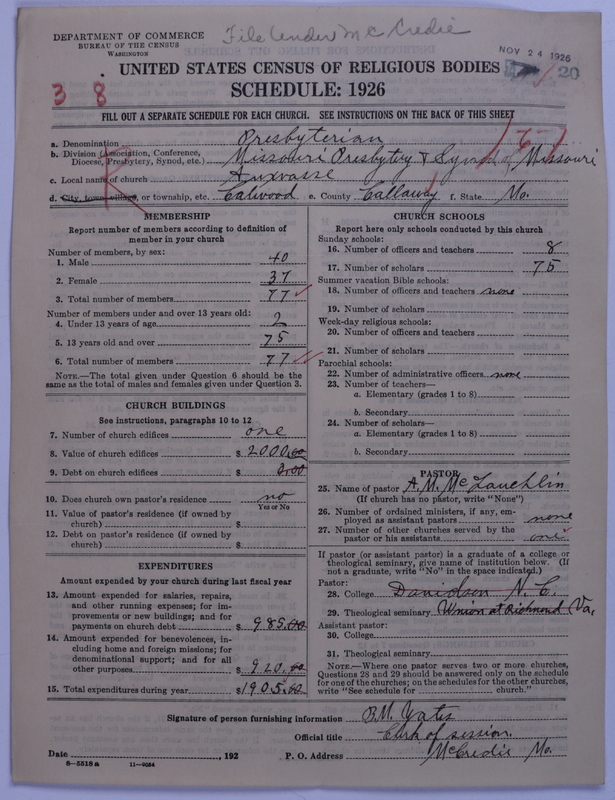 File Under McCredie
DEPARTMENT OF COMMERCE
BUREAU OF THE CENSUS
WASHINGTON
NOV 24 1926
20
UNITED STATES CENSUS OF RELIGIOUS BODIES
SCHEDULE: 1926
3 8
FILL OUT A SEPARATE SCHEDULE FOR EACH CHURCH. SEE INSTRUCTIONS ON THE BACK OF THIS SHEET
a. Denomination Presbyterian
b. Division (Association, Conference, Diocese, Presbytery, Synod, etc.) Missouri Presbytry & Synod of Missouri
c. Local name of church Auxvasse
d. City, town, village, or township, etc. Calwood e. County Callaway f. State Mo.
MEMBERSHIP
Report number of members according to definition of
member in your church
Number of members, by sex:
1. Male 40
2. Female 37
3. Total number of members 77
Number of members under and over 13 years old:
4. Under 13 years of age 2
5. 13 years old and over 75
6. Total number of members 77
NOTE.—The total given under Question 6 should be the
same as the total of males and females given under Question 3.
CHURCH BUILDINGS
See instructions, paragraphs 10 to 12
7. Number of church edifices one
8. Value of church edifices $ 2000.00
9. Debt on church edifices $ 0.00
10. Does church own pastor's residence no
Yes or No
11. Value of pastor's residence (if owned by
church) $
12. Debt on pastor's residence (if owned by
church) $
EXPENDITURES
Amount expended by your church during last fiscal year
13. Amount expended for salaries, repairs,
and other running expenses; for im-
provements or new buildings; and for
payments on church debt $ 985.00
14. Amount expended for benevolences, in-
cluding home and foreign missions; for
denominational support; and for all
other purposes $ 920.00
15. Total expenditures during year $1905.00
CHURCH SCHOOLS
Report here only schools conducted by this church
Sunday schools:
16. Number of officers and teachers 8
17. Number of scholars 75
Summer vacation Bible schools:
18. Number of officers and teachers none
19. Number of scholars
Week-day religious schools:
20. Number of officers and teachers
21. Number of scholars
Parochial schools:
22. Number of administrative officers none
23. Number of teachers—
a. Elementary (grades 1 to 8)
b. Secondary
24. Number of scholars—
a. Elementary (grades 1 to 8)
b. Secondary
PASTOR
25. Name of pastor A. M. McLauchlin
(If church has no pastor, write "None")
26. Number of ordained ministers, if any, em-
ployed as assistant pastors none
27. Number of other churches served by the
pastor or his assistants one
If pastor (or assistant pastor) is a graduate of a college or
theological seminary, give name of institution below. (If
not a graduate, write "No" in the space indicated.)
Pastor:
28. College Davidson N. C.
29. Theological seminary Union at Richmond Va.
Assistant pastor:
30. College
31. Theological seminary
NOTE.—Where one pastor serves two or more churches,
Questions 28 and 29 should be answered only on the schedule
for one of the churches; on the schedules for the other churches,
write "See schedule for church."
Signature of person furnishing information B.M. Yates
Official title Clerk of session.
Date , 192 P. O. Address McCredie Mo.
8-5518a 11-9064